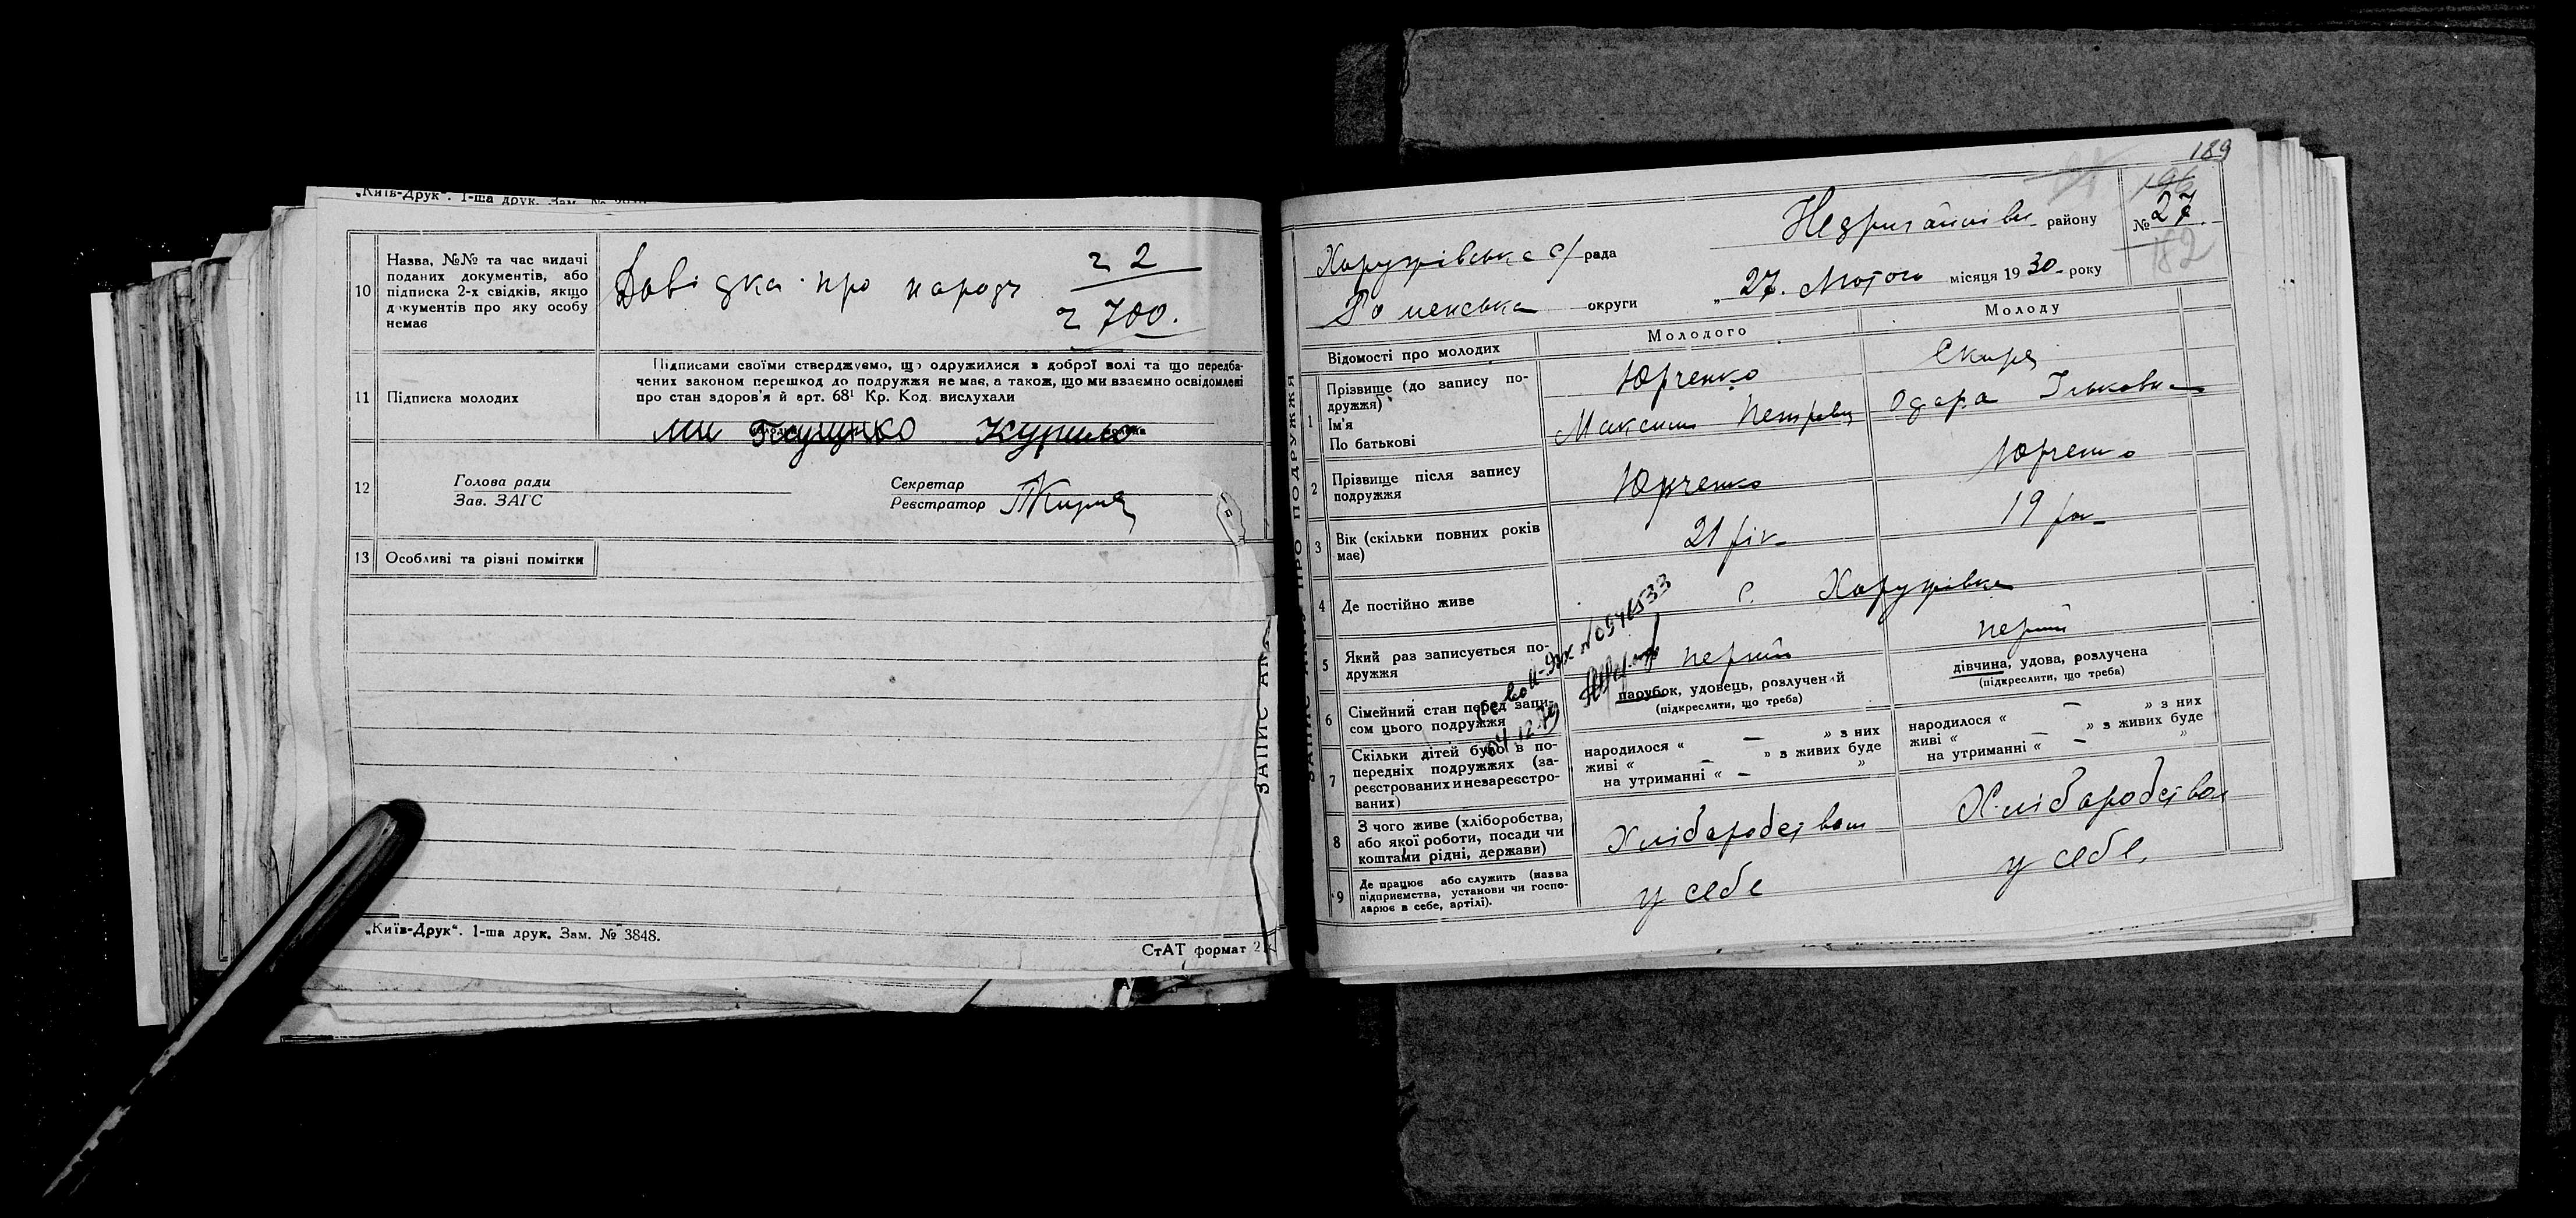 „Київ-Друк“. 1-ша друк. Зам. №
10
Назва, №№ та час видачі
поданих документів, або
підписка 2-х свідків, якщо
документів про яку особу
немає
Довідка про народ
ч 2
ч 700.
11
Підписка молодих
Підписами своїми стверджуємо, що одружилися з доброї волі та що передба-
чених законом перешкод до подружжя не має, а також, що ми взаємно освідомлені
про стан здоров'я й арт. 68¹ Кр. Код. вислухали
молодий
молода
12
Голова ради
Зав. ЗАГС
Секретар
Реєстратор
13
Особливі та різні помітки
„Київ-Друк“. 1-ша друк. Зам. № 3848.
СтАТ формат 2
ЗАПИС АК
189
Хоружівська с/рада
району
№ 27
182
Роменська округи
„ 27. Лютого місяця 1930 року
ЗАПИС АКТ ПРО ПОДРУЖЖЯ
Відомості про молодих
Молодого
Молоду
1
Прізвище (до запису по-
дружжя)
Ім'я
По батькові
Юрченко
Максим Петрович
Скира
Одара Ільковна
2
Прізвище після запису
подружжя
Юрченко
Юрченко
3
Вік (скільки повних років
має)
21 рік
19 рок
4
Де постійно живе
с. Хоружівка
5
Який раз записується по-
дружжя
перший
перший
6
Сімейний стан перед запи-
сом цього подружжя
парубок, удовець, розлучений
(підкреслити, що треба)
дівчина, удова, розлучена
(підкреслити, що треба)
7
Скільки дітей було в по-
передніх подружжях (за-
реєстрованих и незареєстро-
ваних)
народилося « — » з них
живі « — » з живих буде
на утриманні « — »
народилося « — » з них
живі « — » з живих буде
на утриманні « — »
8
З чого живе (хліборобства,
або якої роботи, посади чи
коштами рідні, держави)
Хліборобством
Хліборобством
9
Де працює або служить (назва
підприємства, установи чи госпо-
дарює в себе, артілі).
у себе
у себе.